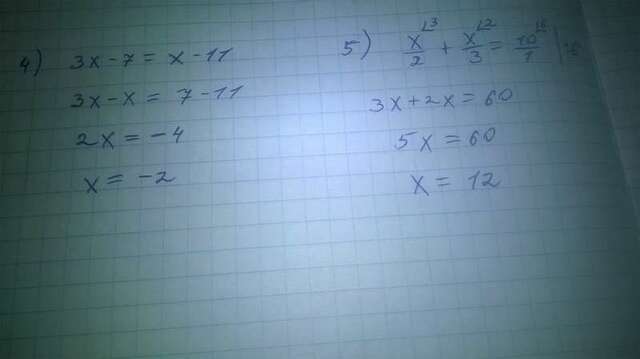 4) 3x - 7 = x - 11
3x - x = 7 - 11
2x = -4
x = -2
5) x/2 ⌞3 + x/3 ⌞2 = 10/1 ⌞6 | · 6
3x + 2x = 60
5x = 60
x = 12